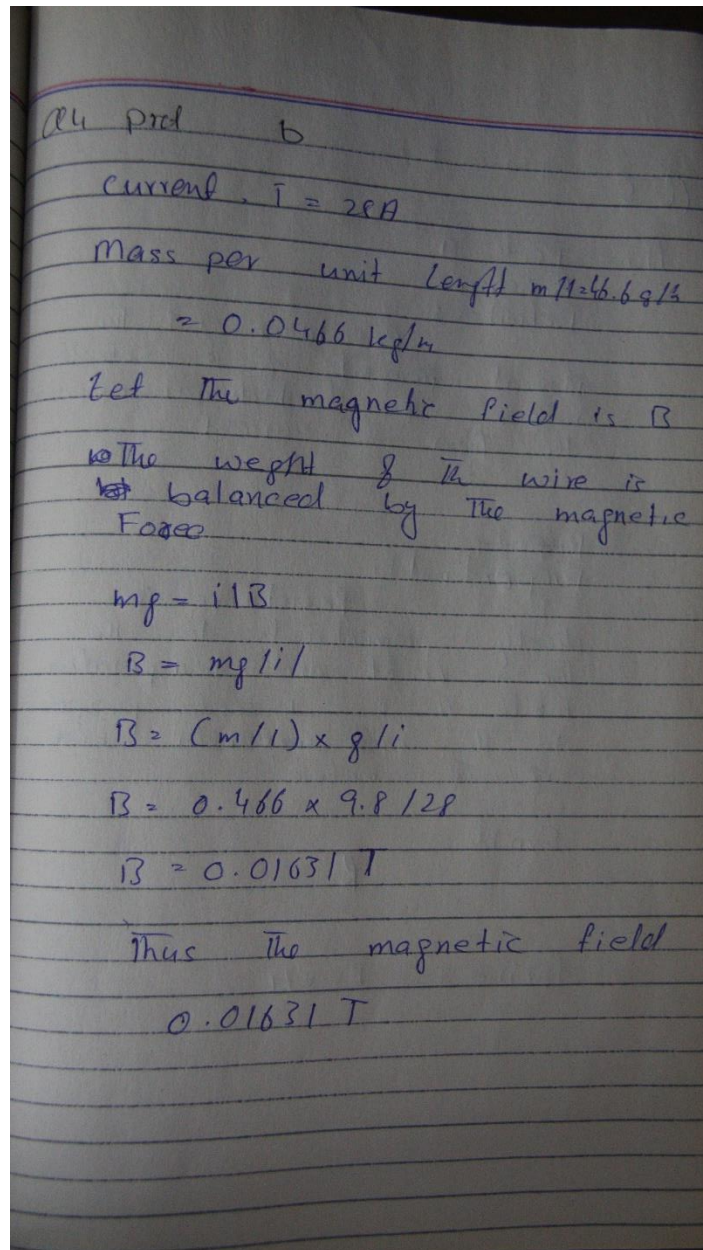 Q4 Prd b
Current, I = 28A
Mass per unit length m/l=46.6 g/m
= 0.0466 kg/m
Let The magnetic field is B
The weght of Th wire is
balanced by The magnetic
Force
mg = ilB
B = mg/il
B = (m/l) x g/i
B = 0.466 x 9.8/28
B = 0.01631 T
Thus The magnetic field
0.01631 T